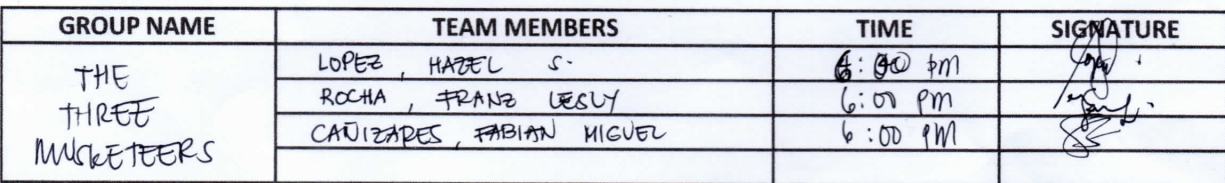 GROUP NAME TEAM MEMBERS TIME SIGNATURE
THE
THREE
MUSKETEERS
LOPEZ, HAZEL S. 6:00 PM
ROCHA, FRANZ LESLY 6:00 PM
CAÑIZARES, FABIAN MIGUEL 6:00 PM